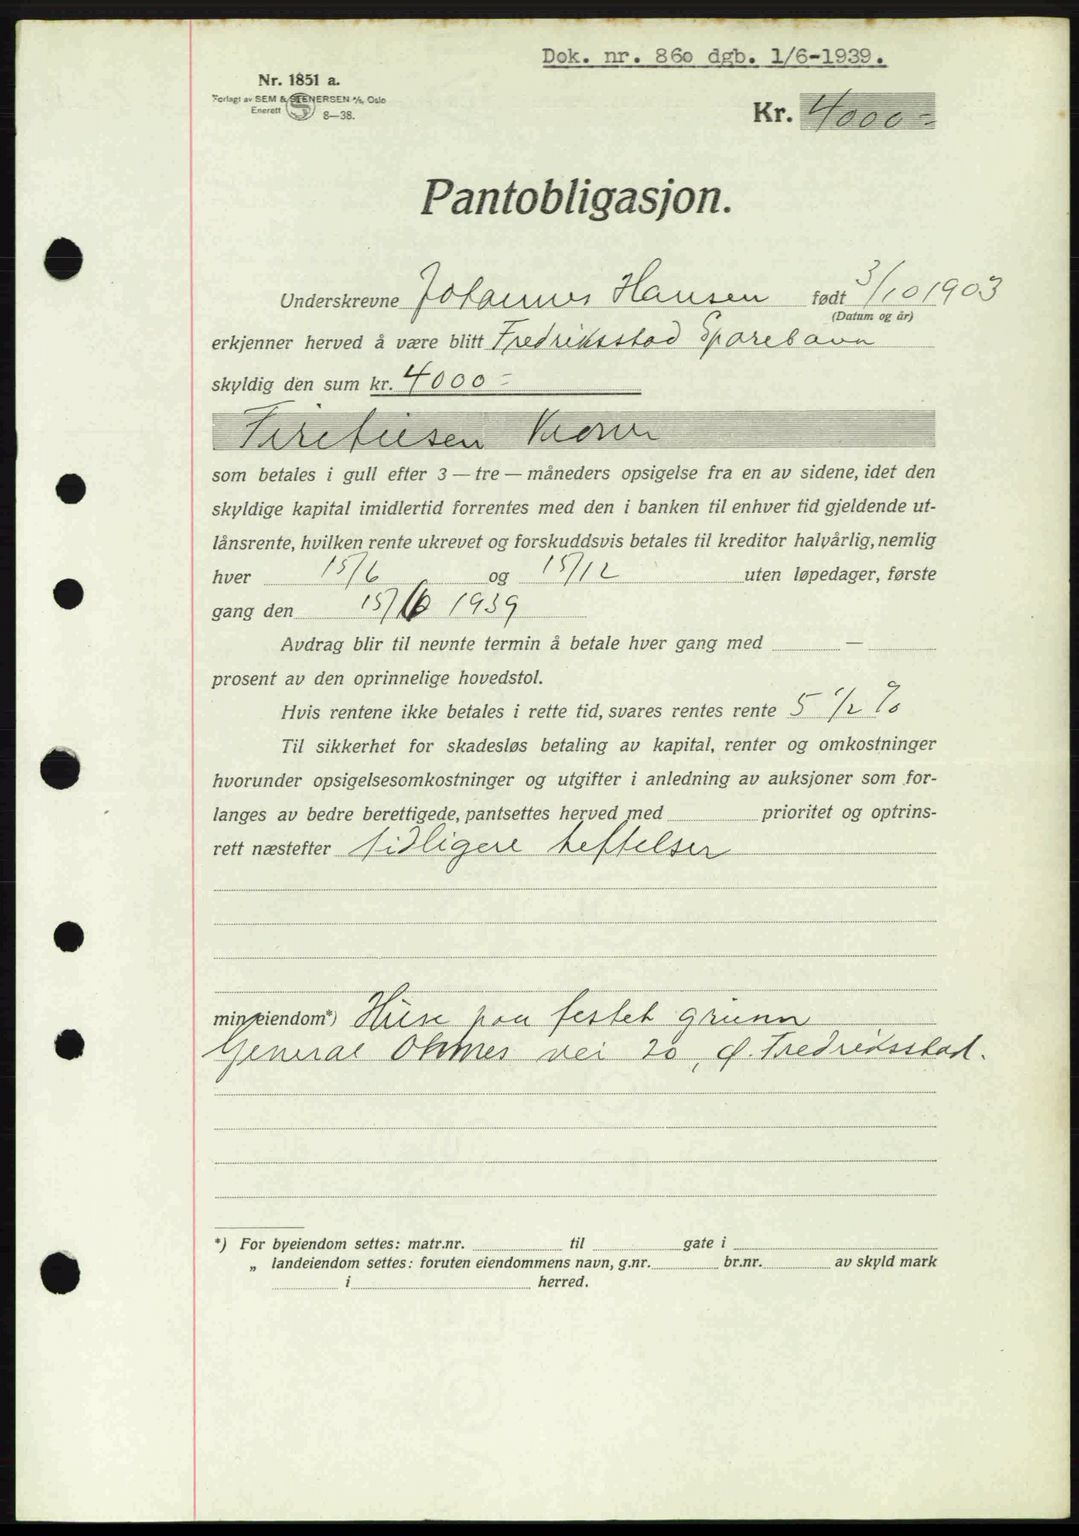 Dok. nr. 860 dgb. 1/6-1939.
Nr. 1851 a.
Forlagt av SEM & STENERSEN A/S, Oslo
Enerett
8—38.
Kr. 4000 =
Pantobligasjon.
Underskrevne Johannes Hansen født 3/10 1903
(Datum og år)
erkjenner herved å være blitt Fredriksstad Sparebank
skyldig den sum kr. 4000 =
Firetusen Kroner
som betales i gull efter 3 — tre — måneders opsigelse fra en av sidene, idet den
skyldige kapital imidlertid forrentes med den i banken til enhver tid gjeldende ut-
lånsrente, hvilken rente ukrevet og forskuddsvis betales til kreditor halvårlig, nemlig
hver 15/6 og 15/12 uten løpedager, første
gang den 15/6 1939
Avdrag blir til nevnte termin å betale hver gang med —
prosent av den oprinnelige hovedstol.
Hvis rentene ikke betales i rette tid, svares rentes rente 5 1/2 %
Til sikkerhet for skadesløs betaling av kapital, renter og omkostninger
hvorunder opsigelsesomkostninger og utgifter i anledning av auksjoner som for-
langes av bedre berettigede, pantsettes herved med prioritet og optrins-
rett næstefter tidligere heftelser
min eiendom*) Huse paa festet grunn
General Ohmes vei 20, Ø. Fredriksstad.
*) For byeiendom settes: matr.nr. til gate i
„ landeiendom settes: foruten eiendommens navn, g.nr. br.nr. av skyld mark
i herred.